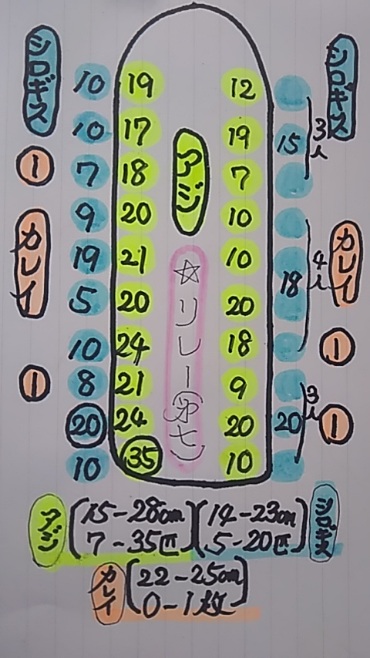 シロギス
シロギス
10 19 12
10 17 19 15 3人
1 7 18 アジ 7
9 20 10
カレイ 19 21 10 18 4人 カレイ
5 20 20
10 24 ☆リレー 18 1
1 8 21 9
20 24 20 20 3人 1
10 35 10
アジ (15-28cm) (14-23cm) シロギス
7-35匹 5-20匹
カレイ (22-25cm)
0-1枚